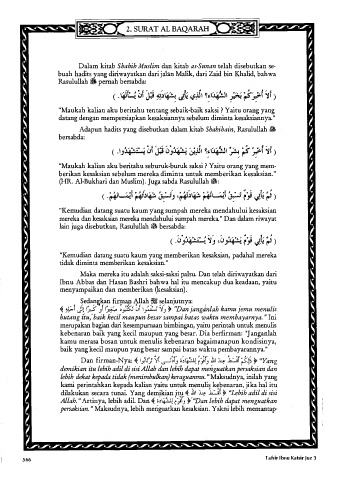 2. SURAT AL BAQARAH
Dalam kitab Shahih Muslim dan kitab as-Sunan telah disebutkan se-
buah hadits yang diriwayatkan dari jalan Malik, dari Zaid bin Khalid, bahwa
Rasulullah ﷺ pernah bersabda:
( أَلاَ أُخْبِرُكُمْ بِخَيْرِ الشُّهَدَاءِ؟ الَّذِي يَأْتِي بِشَهَادَتِهِ قَبْلَ أَنْ يُسْأَلَهَا. )
"Maukah kalian aku beritahu tentang sebaik-baik saksi ? Yaitu orang yang
datang dengan mempersiapkan kesaksiannya sebelum diminta kesaksiannya."
Adapun hadits yang disebutkan dalam kitab Shahihain, Rasulullah ﷺ
bersabda:
( أَلاَ أُخْبِرُكُمْ بِشَرِّ الشُّهَدَاءِ؟ الَّذِيْنَ يَشْهَدُوْنَ قَبْلَ أَنْ يُسْتَشْهَدُوا. )
"Maukah kalian aku beritahu seburuk-buruk saksi ? Yaitu orang yang mem-
berikan kesaksian sebelum mereka diminta untuk memberikan kesaksian."
(HR. Al-Bukhari dan Muslim). Juga sabda Rasulullah ﷺ:
( ثُمَّ يَأْتِي قَوْمٌ تَسْبِقُ أَيْمَانُهُمْ شَهَادَتَهُمْ، وَتَسْبِقُ شَهَادَتُهُمْ أَيْمَانَهُمْ. )
"Kemudian datang suatu kaum yang sumpah mereka mendahului kesaksian
mereka dan kesaksian mereka mendahului sumpah mereka." Dan dalam riwayat
lain juga disebutkan, Rasulullah ﷺ bersabda:
( ثُمَّ يَأْتِي قَوْمٌ يَشْهَدُوْنَ، وَلاَ يُسْتَشْهَدُوْنَ. )
"Kemudian datang suatu kaum yang memberikan kesaksian, padahal mereka
tidak diminta memberikan kesaksian."
Maka mereka itu adalah saksi-saksi palsu. Dan telah diriwayatkan dari
Ibnu Abbas dan Hasan Bashri bahwa hal itu mencakup dua keadaan, yaitu
menyampaikan dan memberikan (kesaksian).
Sedangkan firman Allah selanjutnya:
﴿ وَلاَ تَسْئَمُوا أَنْ تَكْتُبُوهُ صَغِيرًا أَوْ كَبِيرًا إِلَى أَجَلِهِ ﴾ "Dan janganlah kamu jemu menulis
hutang itu, baik kecil maupun besar sampai batas waktu membayarnya." Ini
merupakan bagian dari kesempurnaan bimbingan, yaitu perintah untuk menulis
kebenaran baik yang kecil maupun yang besar. Dia berfirman: "Janganlah
kamu merasa bosan untuk menulis kebenaran bagaimanapun kondisinya,
baik yang kecil maupun yang besar sampai batas waktu pembayarannya."
Dan firman-Nya: ﴿ ذَلِكُمْ أَقْسَطُ عِندَ اللهِ وَأَقْوَمُ لِلشَّهَادَةِ وَأَدْنَى أَلاَّ تَرْتَابُوا ﴾ "Yang
demikian itu lebih adil di sisi Allah dan lebih dapat menguatkan persaksian dan
lebih dekat kepada tidak (menimbulkan) keraguanmu." Maksudnya, inilah yang
kami perintahkan kepada kalian yaitu untuk menulis kebenaran, jika hal itu
dilakukan secara tunai. Yang demikian itu ﴿ أَقْسَطُ عِندَ اللهِ ﴾ "Lebih adil di sisi
Allah." Artinya, lebih adil. Dan ﴿ وَأَقْوَمُ لِلشَّهَادَةِ ﴾ "Dan lebih dapat menguatkan
persaksian." Maksudnya, lebih menguatkan kesaksian. Yakni lebih memantap-
566
Tafsir Ibnu Katsir Juz 3